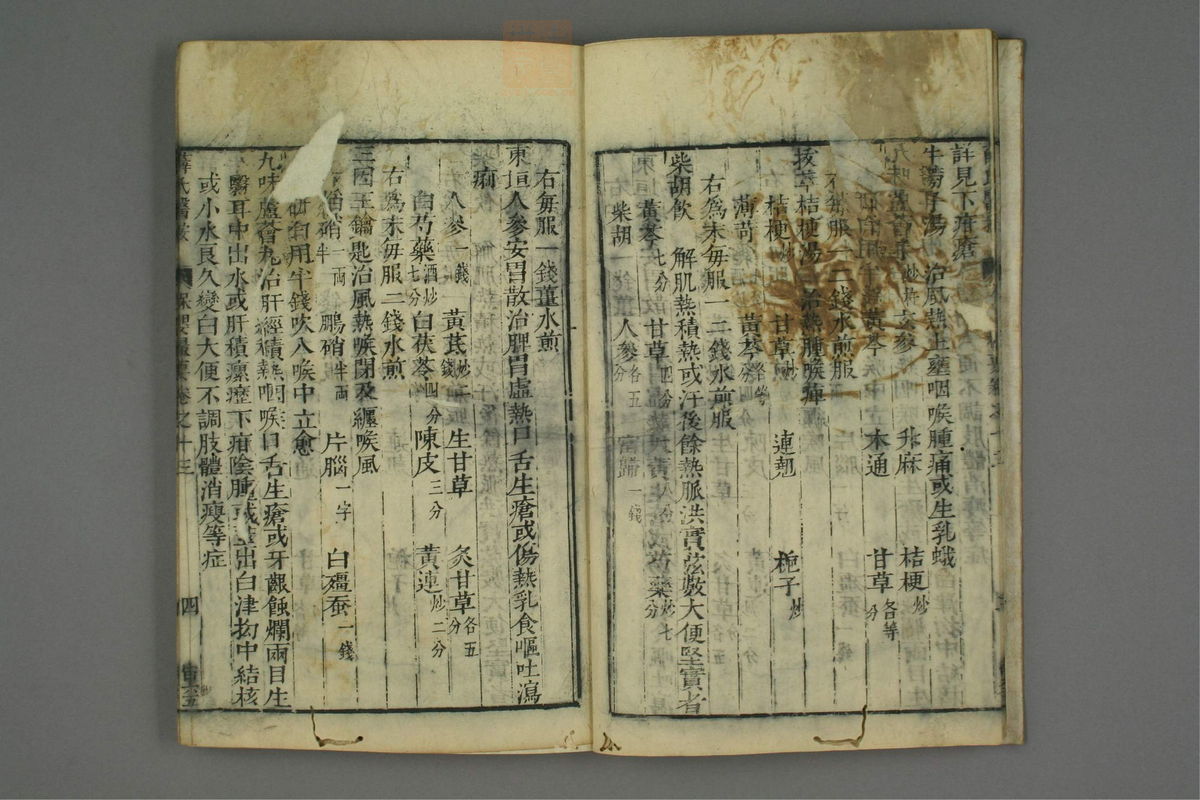 詳見下疳瘡
牛蒡子湯 治風熱上壅咽喉腫痛或生乳蛾
玄參 升麻 桔梗炒
黃芩 木通 甘草各等分
每服一二錢水煎服
拔萃桔梗湯 治熱腫喉痺
桔梗 甘草炒 連翹 梔子炒
薄荷 黃芩各等分
右為末每服一二錢水煎服
柴胡飲 解肌熱積熱或汗後餘熱脈洪實弦數大便堅實者
黃芩七分 甘草四分 大黃 芍藥炒七分
柴胡 人參各五分 當歸一錢
右每服一錢薑水煎
東垣人參安胃散治脾胃虛熱口舌生瘡或傷熱乳食嘔吐瀉
痢
人參一錢 黃芪炒 生甘草 炙甘草各五分
白芍藥酒炒七分 白茯苓四分 陳皮三分 黃連炒二分
右為末每服二錢水煎
三因玉鑰匙治風熱喉閉及纏喉風
硝一兩半 鵬硝半兩 片腦一字 白殭蚕一錢
用半錢吹入喉中立愈
九味蘆薈丸治肝經積熱咽喉口舌生瘡或牙齦蝕爛兩目生
翳耳中出水或肝積瘰癧下疳陰腫或莖出白津拗中結核
或小水良久變白大便不調肢體消瘦等症
薛氏醫案 保嬰撮要卷之十三 四